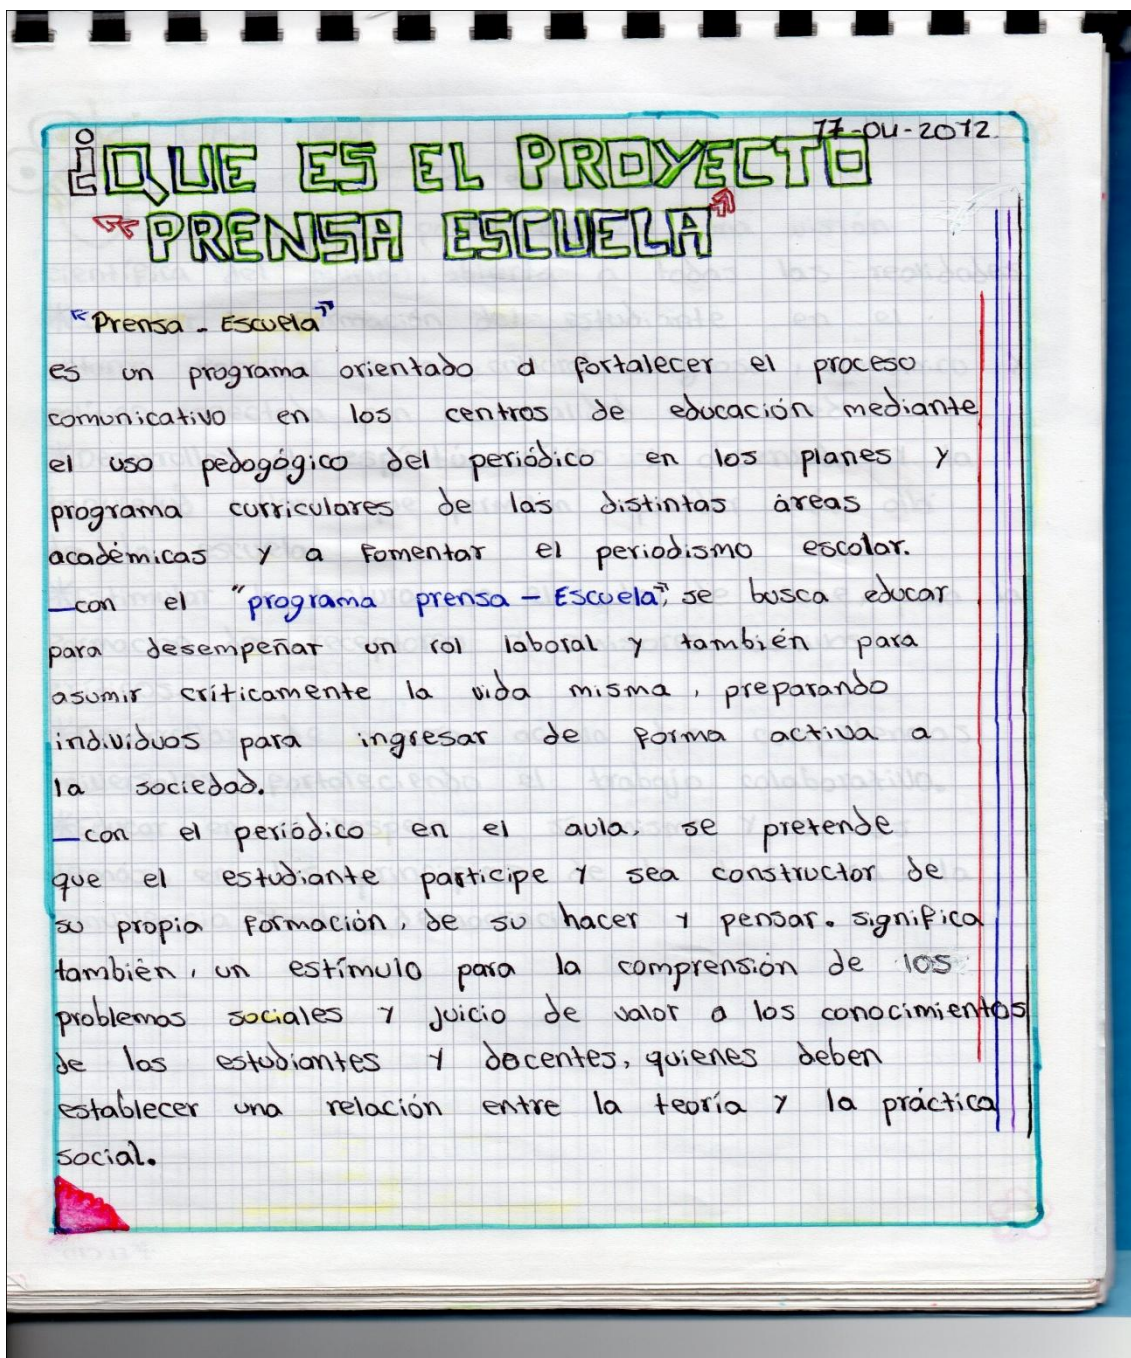 17-04-2012
¿QUE ES EL PROYECTO
"PRENSA ESCUELA"
"Prensa - Escuela"
es un programa orientado a fortalecer el proceso
comunicativo en los centros de educación mediante
el uso pedogógico del periódico en los planes y
programa curriculares de las distintas áreas
académicas y a fomentar el periodismo escolar.
_con el "programa prensa - Escuela", se busca educar
para desempeñar un rol laboral y también para
asumir críticamente la vida misma, preparando
individuos para ingresar de forma activa a
la sociedad.
_con el periódico en el aula, se pretende
que el estudiante participe y sea constructor de
su propia formación, de su hacer y pensar. significa
también, un estímulo para la comprensión de los
problemas sociales y juicio de valor a los conocimientos
de los estudiantes y docentes, quienes deben
establecer una relación entre la teoría y la práctica
social.